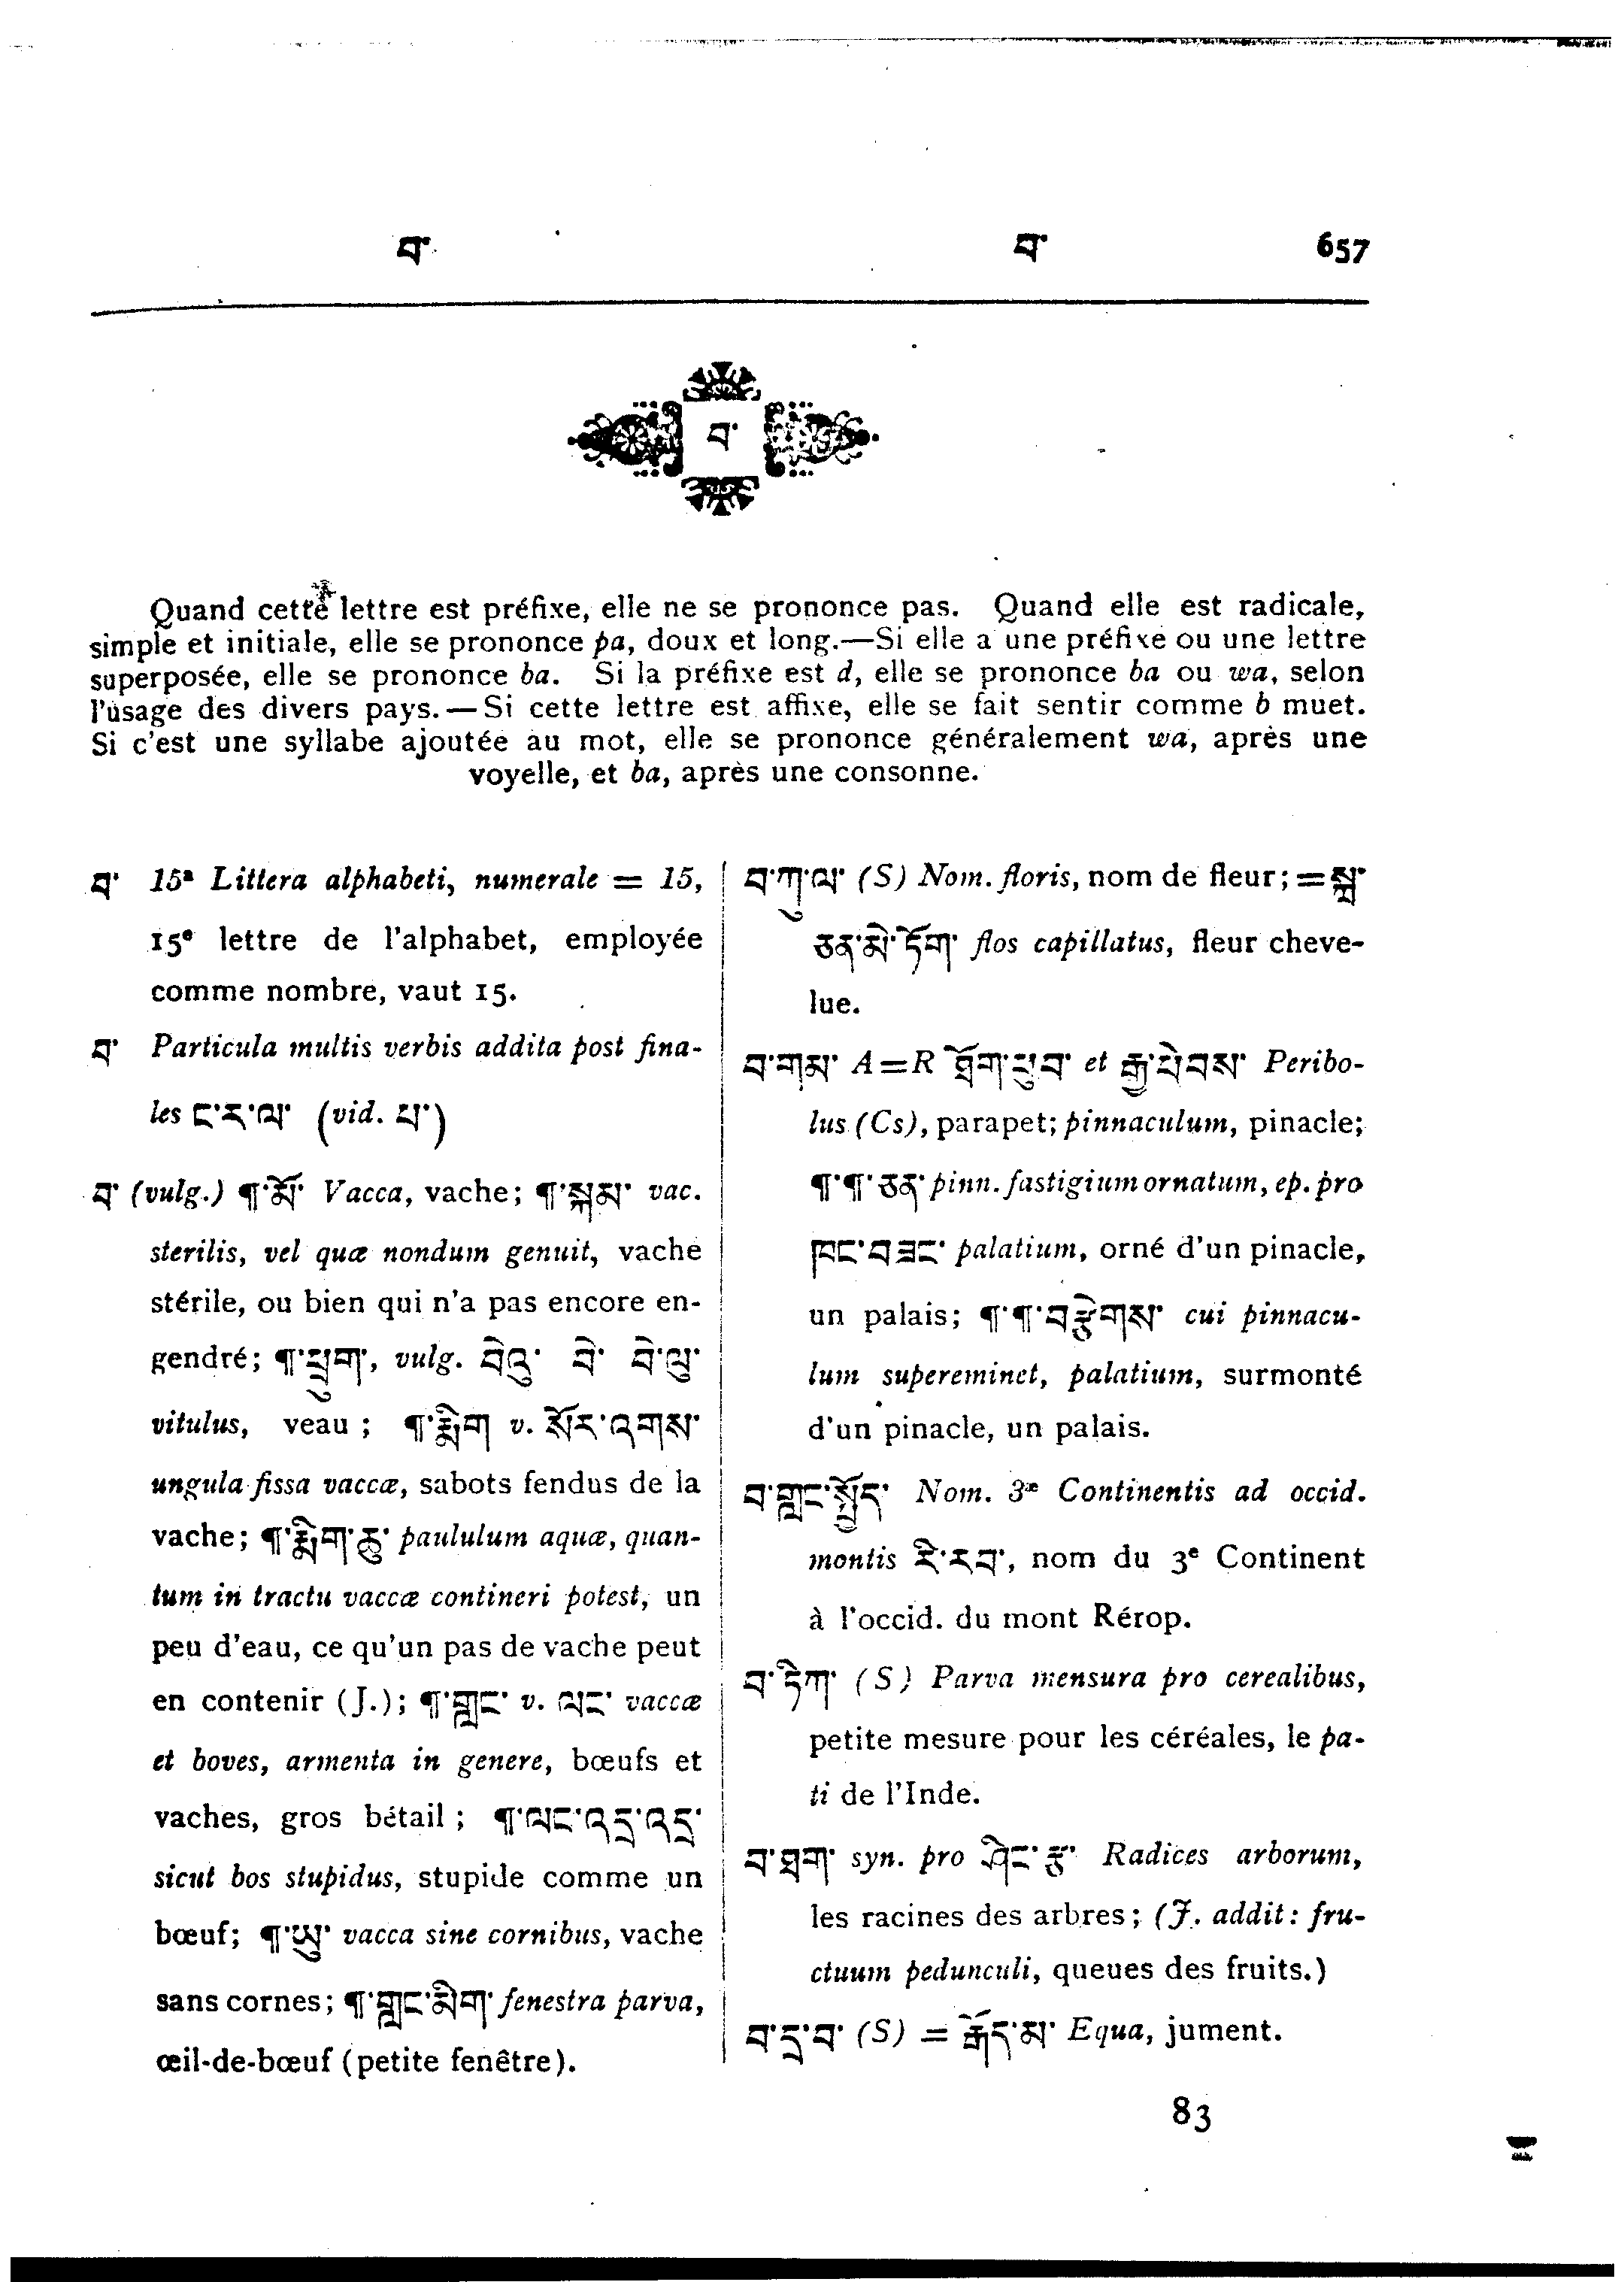 བ་ བ་ 657
བ་
Quand cette lettre est préfixe, elle ne se prononce pas. Quand elle est radicale,
simple et initiale, elle se prononce pa, doux et long.—Si elle a une préfixe ou une lettre
superposée, elle se prononce ba. Si la préfixe est d, elle se prononce ba ou wa, selon
l'usage des divers pays.—Si cette lettre est affixe, elle se fait sentir comme b muet.
Si c'est une syllabe ajoutée au mot, elle se prononce généralement wa, après une
voyelle, et ba, après une consonne.
བ་ 15ª Littera alphabeti, numerale = 15,
15e lettre de l'alphabet, employée
comme nombre, vaut 15.
བ་ Particula multis verbis addita post fina-
les ང་ར་ལ་ (vid. པ་)
བ་ (vulg.) ¶་མོ་ Vacca, vache; ¶་སྐམ་ vac.
sterilis, vel quæ nondum genuit, vache
stérile, ou bien qui n'a pas encore en-
gendré; ¶་ཕྲུག་, vulg. བེའུ་ བེ་ བེ་ལུ་
vitulus, veau; ¶་རྨིག v. སོར་འགས་
ungula fissa vaccæ, sabots fendus de la
vache; ¶་རྨིག་ཆུ་ paululum aquæ, quan-
tum in tractu vaccæ contineri potest, un
peu d'eau, ce qu'un pas de vache peut
en contenir (J.); ¶་གླང་ v. ལང་ vaccæ
et boves, armenta in genere, bœufs et
vaches, gros bétail; ¶་ལང་འདྲ་འདྲ་
sicut bos stupidus, stupide comme un
bœuf; ¶་ཡུ་ vacca sine cornibus, vache
sans cornes; ¶་གླང་མིག་ fenestra parva,
œil-de-bœuf (petite fenêtre).
བ་ཀུ་ལ་ (S) Nom. floris, nom de fleur; =སྐྲ་
ཅན་མེ་ཏོག་ flos capillatus, fleur cheve-
lue.
བ་གམ་ A=R ཐོག་ཕུབ་ et རྒྱ་ཕིབས་ Peribo-
lus (Cs), parapet; pinnaculum, pinacle;
¶་¶་ཅན་ pinn. fastigium ornatum, ep. pro
ཁང་བཟང་ palatium, orné d'un pinacle,
un palais; ¶་¶་བརྩེགས་ cui pinnacu-
lum supereminet, palatium, surmonté
d'un pinacle, un palais.
བ་གླང་སྤྱོད་ Nom. 3æ Continentis ad occid.
montis རི་རབ་, nom du 3e Continent
à l'occid. du mont Rérop.
བ་ཏིཀ་ (S) Parva mensura pro cerealibus,
petite mesure pour les céréales, le pa-
ti de l'Inde.
བ་ཐག་ syn. pro ཤིང་རྩ་ Radices arborum,
les racines des arbres; (J. addit: fru-
ctuum pedunculi, queues des fruits.)
བ་དྲ་བ་ (S) = རྒོད་མ་ Equa, jument.
83